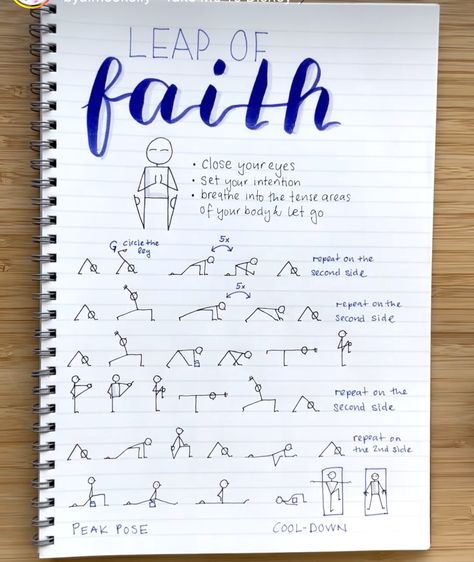 LEAP OF
faith
• close your eyes
• set your intention
• breathe into the tense areas
of your body & let go
circle the
leg
5x
repeat on the
second side
5x
repeat on the
second side
repeat on the
second side
repeat on
the 2nd side
PEAK POSE
COOL-DOWN